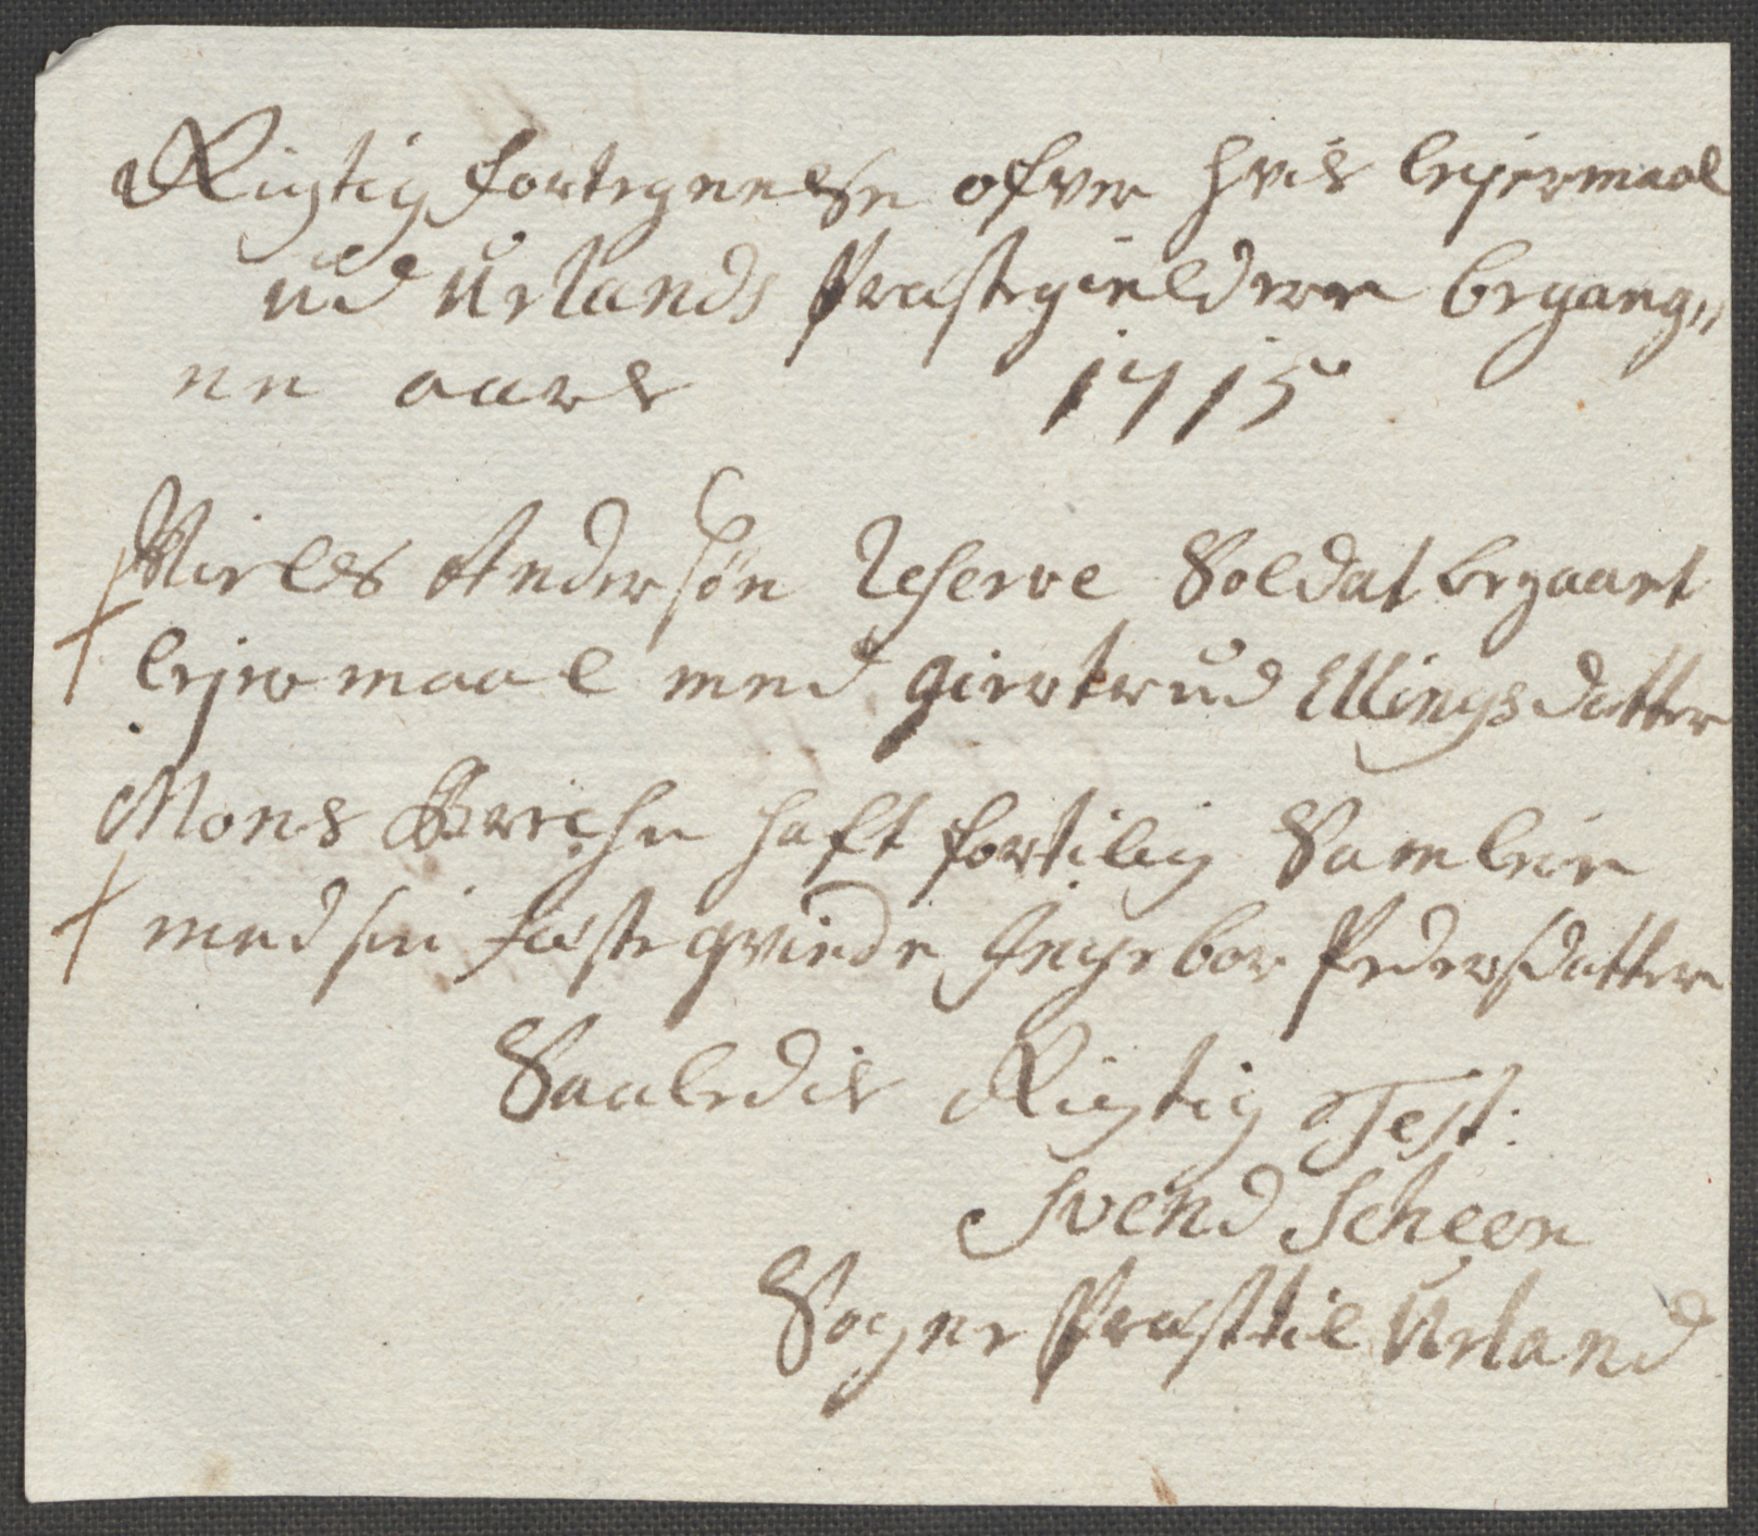 Rigtig fortegnelse ofver hvis lejermaal
ud Urlands Præstegield ere begang,,
en aars 1715
Niels Andersøn Reserve Soldat begaaet
lejermaal med giertrud Ellingsdatter
Mons haft fortilig Samleie
med sin fæste qvinde Ingebor Pedersdatter
Saaledis Rigtig Test:
Svend Scheen
Sogne Præst til Urland